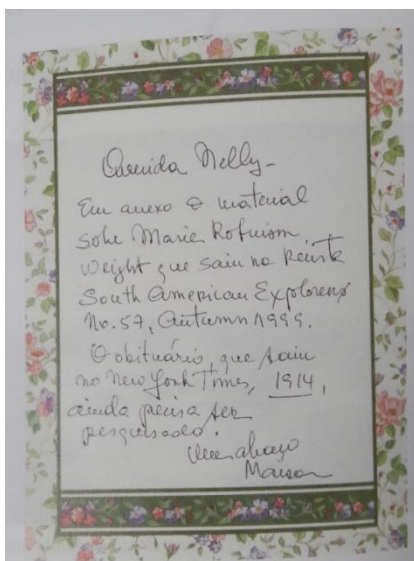 Querida Nelly -
Em anexo o material
sobe Marie Robinson
Weight que saiu na Revista
South American Explorers
No. 57, Autumn 1999.
O obituário, que saiu
no New York Times, 1914,
ainda precisa ser
pesquisado.
Um abraço